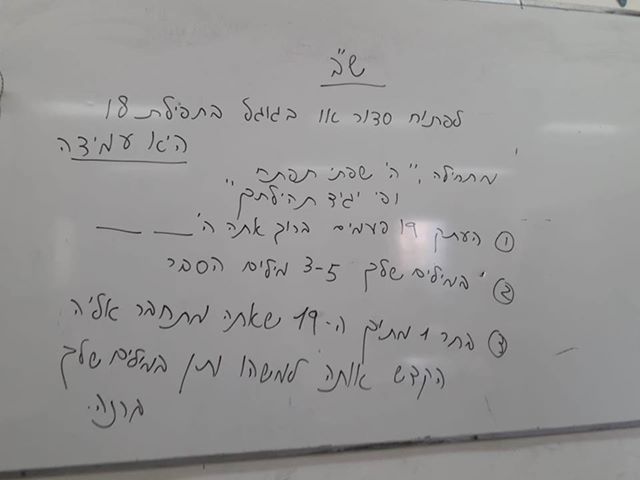 ש"ב
לפתוח סדור או בגוגל בתפילת 18
היא עמידה
מתחילה "ה' שפתי תפתח
ופי יגיד תהילתך"
① העתק 19 פעמים ברוך אתה ה' ___ ___
② במילים שלך 3-5 מילים הסבר
③ בחר 1 מתוך ה-19 שאתה מתחבר אליה
הקדש אותה למשהו ותן במילים שלך